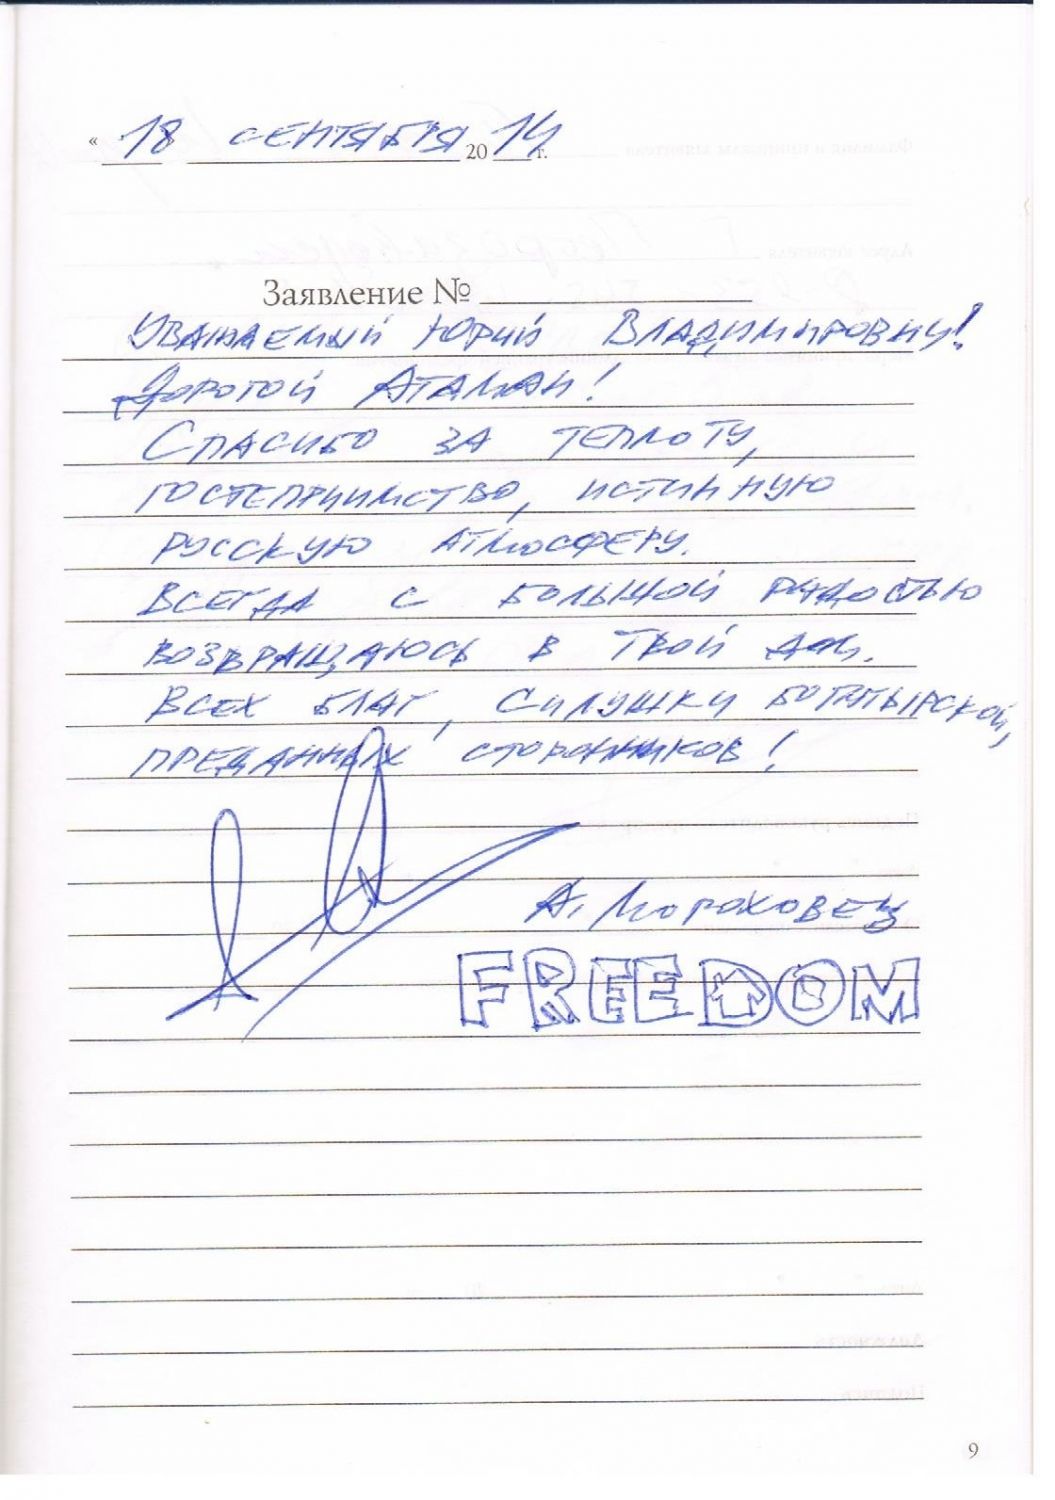 « 18 СЕНТЯБРЯ 2014 г.
Заявление №
УВАЖАЕМЫЙ ЮРИЙ ВЛАДИМИРОВИЧ!
ДОРОГОЙ АТАМАН!
СПАСИБО ЗА ТЕПЛОТУ,
ГОСТЕПРИИМСТВО, ИСТИННУЮ
РУССКУЮ АТМОСФЕРУ.
ВСЕГДА С БОЛЬШОЙ РАДОСТЬЮ
ВОЗВРАЩАЮСЬ В ТВОЙ ДОМ.
ВСЕХ БЛАГ, СИЛУШКИ БОГАТЫРСКОЙ,
ПРЕДАННЫХ СТОРОННИКОВ!
А. МОРОХОВЕЦ
FREEDOM
9